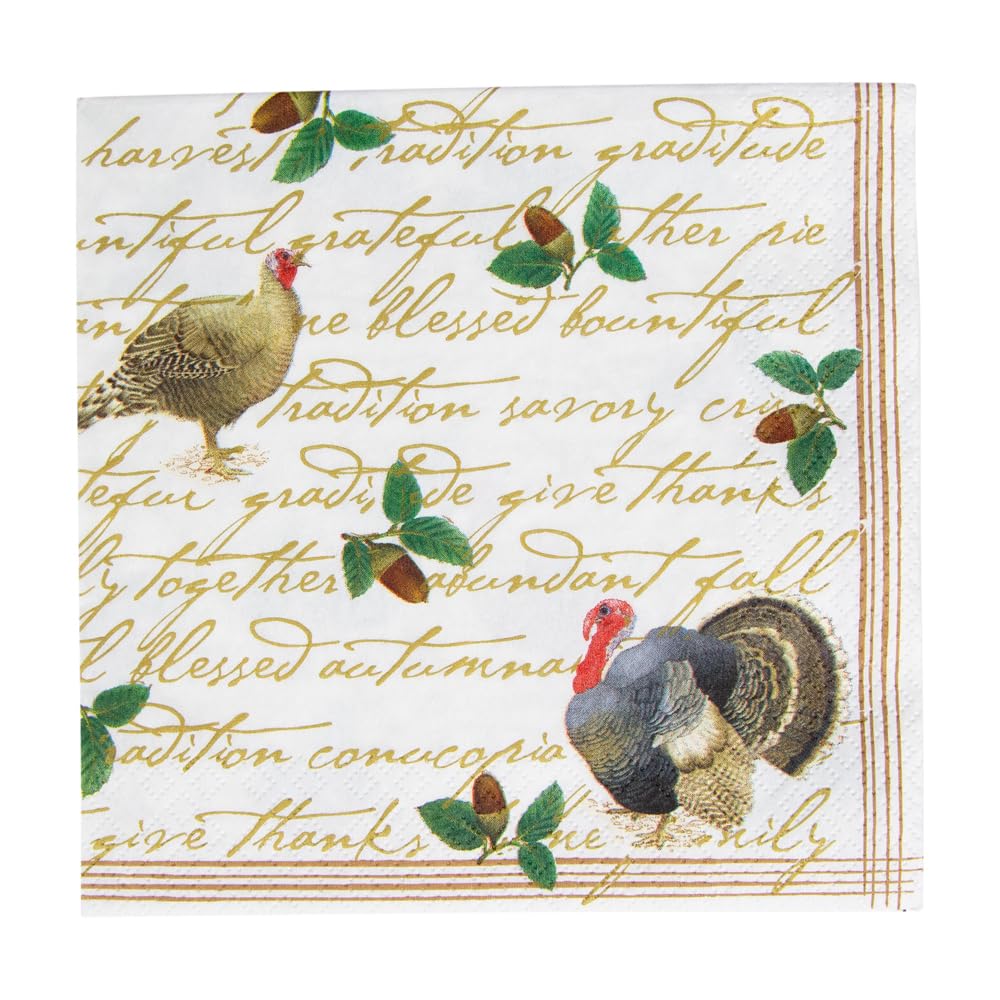 harvest tradition graditude
untiful grateful ther pie
ant ne blessed bountiful
tradition savory cri
teful graditude give thanks
ly together abundant fall
l blessed autumna
adition conucopia
give thanks ne mily